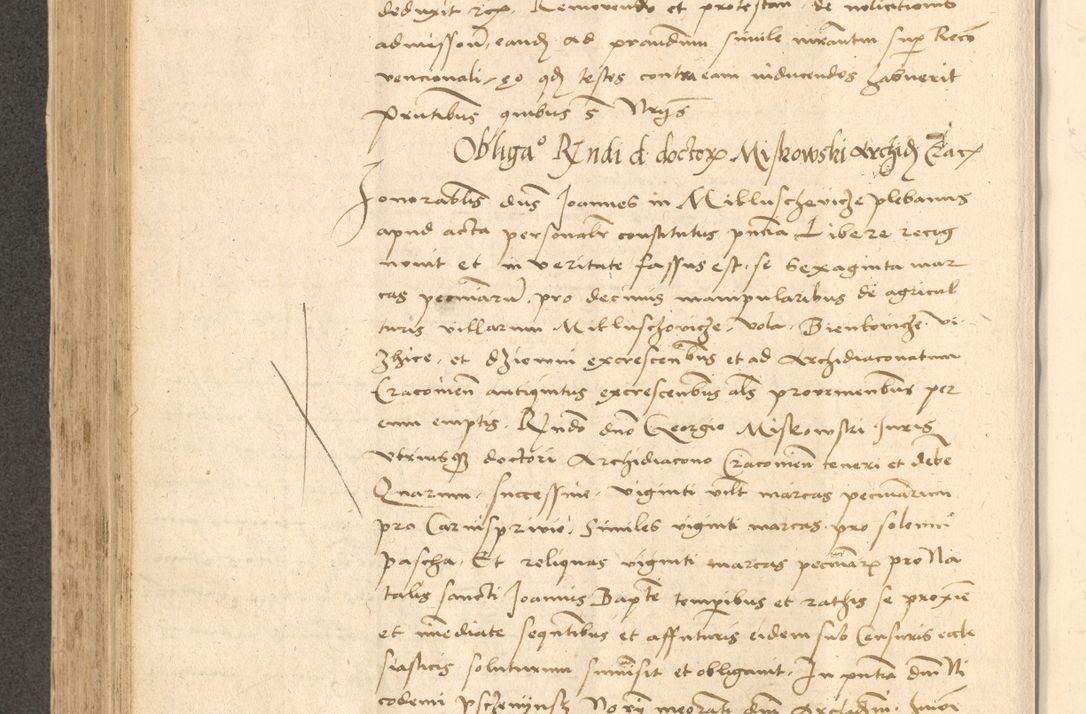 deduxit etc. Removendo et protestan de nolicitiorius
admisson, eandem ad prandium simile iurantur super Reco
vencionali, quod testes contra eam inducendos habuerit
Pruntibus quibus s Nrijs
Obliga° Rndi d. doctor Miskowski Archid Crac
Honorablis dns Joannes in Mikluschevicze plebanus
apud acta personalr constitutus pntia Libere recog
novit et in veritate fassus est, se Sexaginta mar
cas pecuniaru, pro decimis manipularibus de agricul
turis villarum Mikluschovicze, Vola, Bienkovicze, Vi
zhice, et dziewin excrescentibus et ad Archidiaconatum
Cracovien antiquitus excrescentibus als provenientibus per
eum emptis, Rndo dno Georgio Miskowski Juris
utriusque doctori Archidiacono Cracovien teneri et debe
Quarum, successive, viginti vilt marcas pecuniarum
pro Carnisprivio, Similes viginti marcas pro solenni
Pascha, Et reliquas viginti marcas pecuniar pro Na
talis sancti Joannis Bapte temporibus et rathis se proxie
et imediate sequentibus et affuturis eidem sub Censuris eccle
siasticis soluturum summisit et obligavit, In pntia dni Ni
codemi